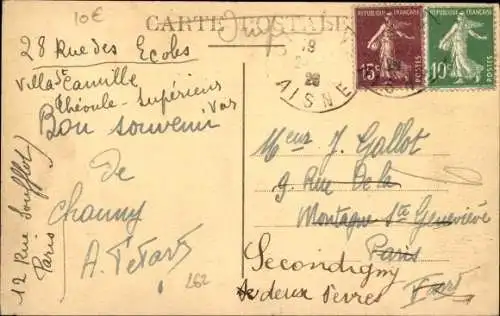 10€
CARTE POSTALE
28 Rue des Ecoles
Villa St Camille
Théoule-Supérieur
Var
Bon souvenir
de
Chauny
A. Petart
12 Rue Soufflot
Paris
262
18
28
AISNE
RÉPUBLIQUE FRANÇAISE
15c
POSTES
RÉPUBLIQUE FRANÇAISE
10c
POSTES
Meur J. Gallot
9 Rue De la
Montagne Ste Geneviève
Paris
Secondigny
deux Sèvres